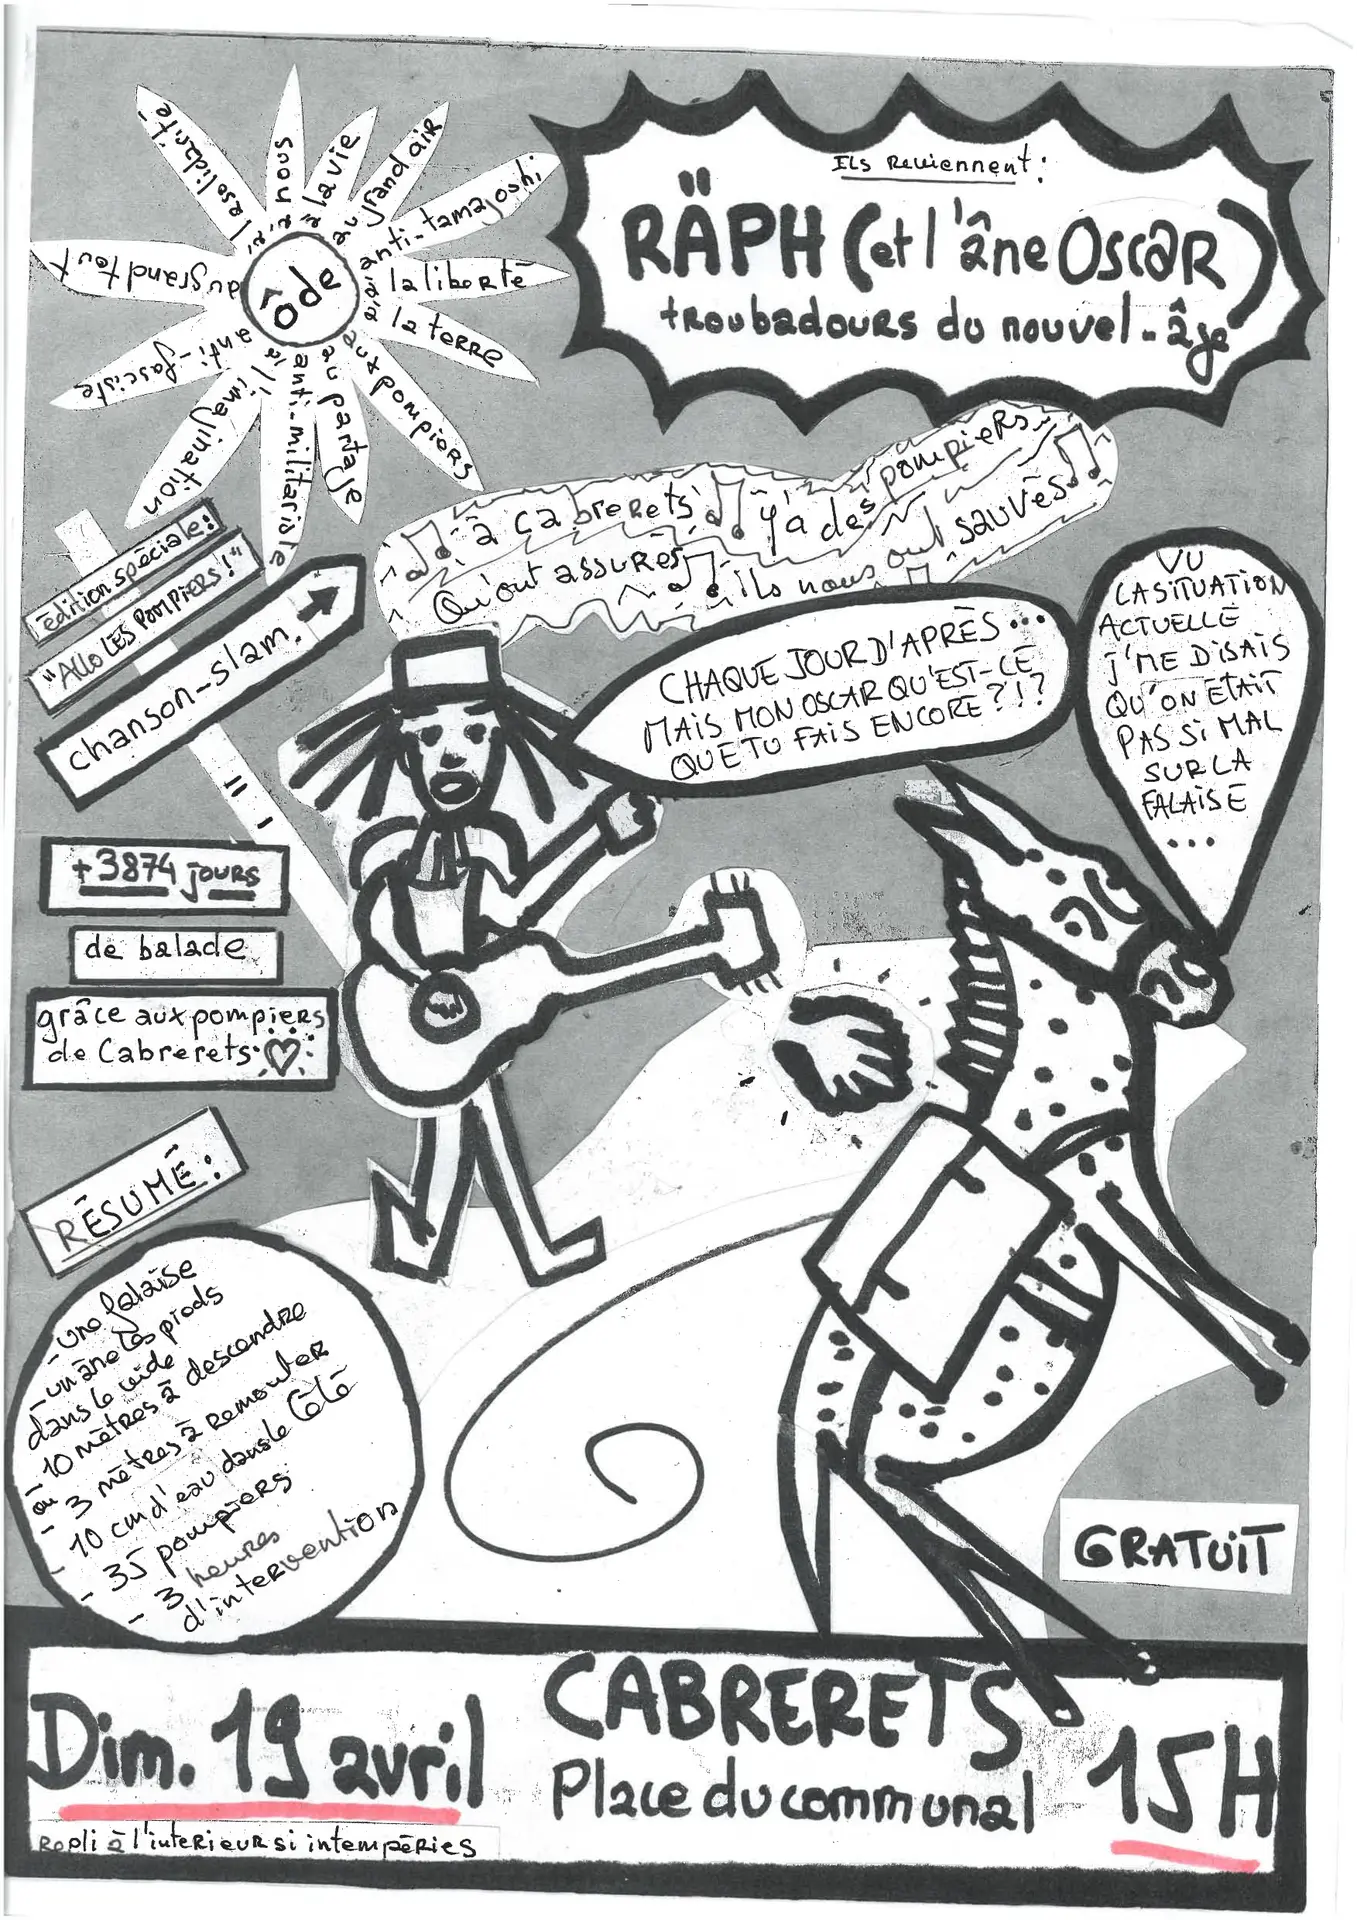 Ils Reviennent:
RÄPH (et l'âne Oscar)
troubadours du nouvel-âge
ôde
à la solidarité
à nous
à la vie
au grand air
anti-tamagoshi
à la liberté
à la terre
aux pompiers
au partage
anti-militariste
à l'imagination
anti-fasciste
au grand tout
à Cabrerets y'a des pompiers
Qu'ont assurés ils nous ont sauvés
édition spéciale!
"ALLO LES POMPIERS!"
chanson-slam.
CHAQUE JOUR D'APRÈS...
MAIS MON OSCAR QU'EST-CE
QUE TU FAIS ENCORE?!?
VU
LA SITUATION
ACTUELLE
J'ME DISAIS
QU'ON ETAIT
PAS SI MAL
SUR LA
FALAISE
...
+3874 jours
de balade
grâce aux pompiers
de Cabrerets
RÉSUMÉ:
- une falaise
- un âne les pieds
dans le vide
- 10 mètres à descendre
ou
- 3 mètres à remonter
- 10 cm d'eau dans le Célé
- 35 pompiers
- 3 heures
d'intervention
GRATUIT
Dim. 19 avril
Repli à l'interieur si intempéries
CABRERETS
Place du communal
15H